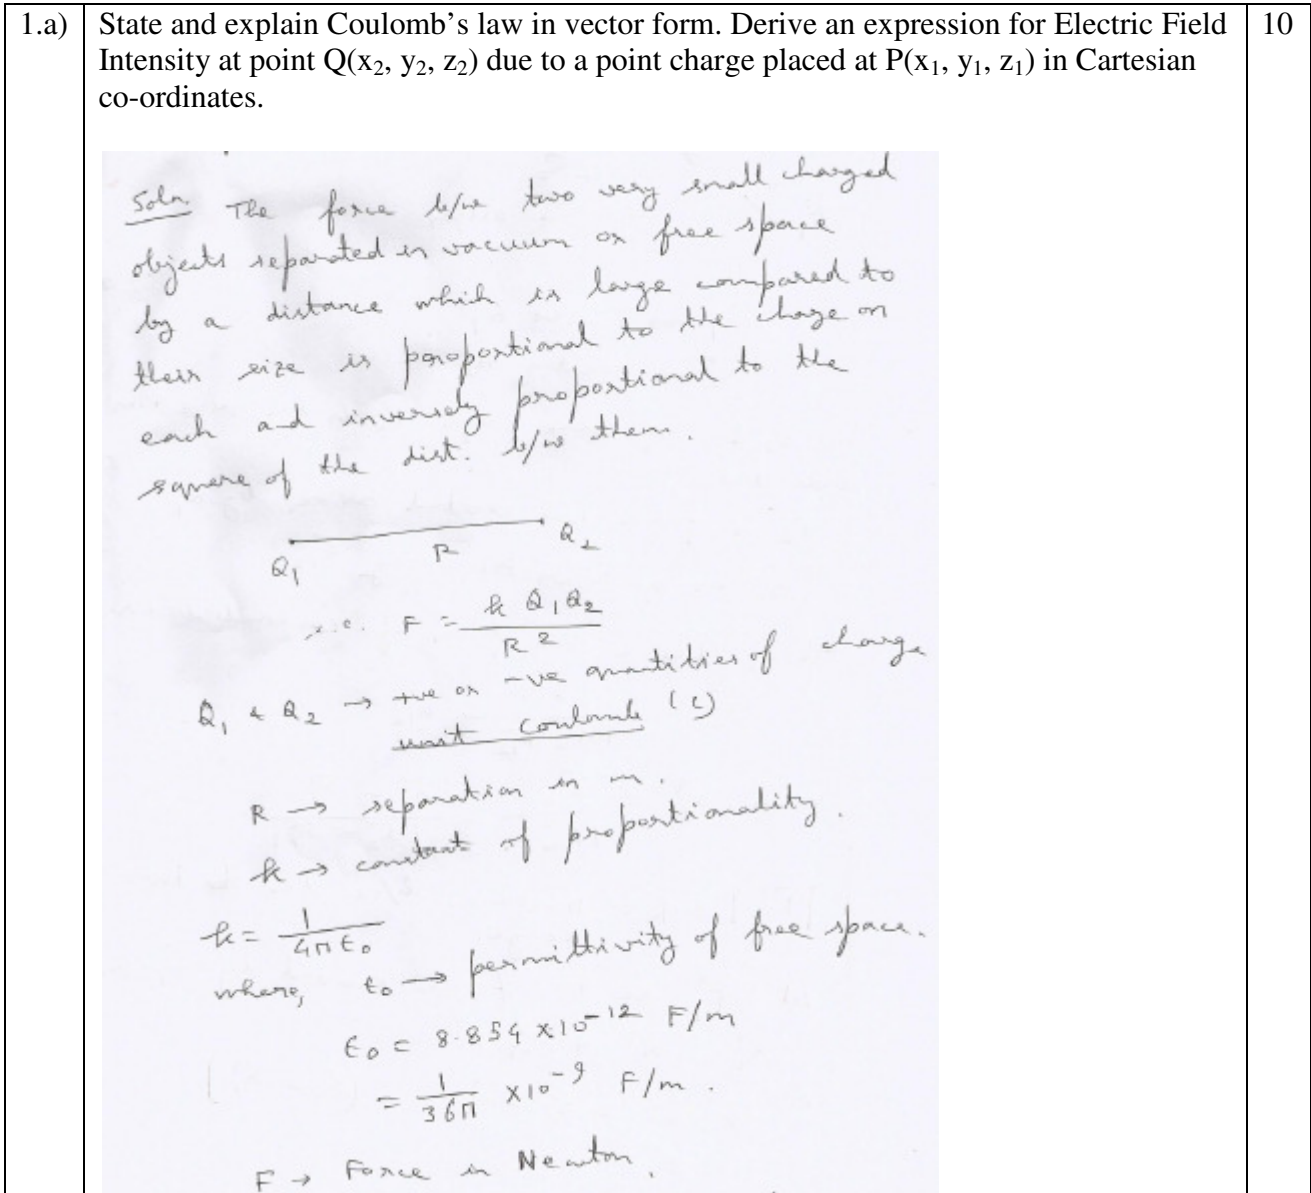 1.a) State and explain Coulomb's law in vector form. Derive an expression for Electric Field 10
Intensity at point Q(x₂, y₂, z₂) due to a point charge placed at P(x₁, y₁, z₁) in Cartesian
co-ordinates.
Soln The force b/w two very small charged
objects separated in vacuum or free space
by a distance which is large compared to
their size is proportional to the chage on
each and inversely proportional to the
square of the dist. b/w them.
Q₁ R Q₂
i.e. F = k Q₁Q₂ / R²
Q₁ & Q₂ → +ve or -ve quantities of charge
unit coulomb (C)
R → separation in m.
k → constant of proportionality.
k = 1 / 4πϵ₀
where, ϵ₀ → permittivity of free space.
ϵ₀ = 8.854 x10⁻¹² F/m
= 1/36π x10⁻⁹ F/m.
F → Force in Newton.